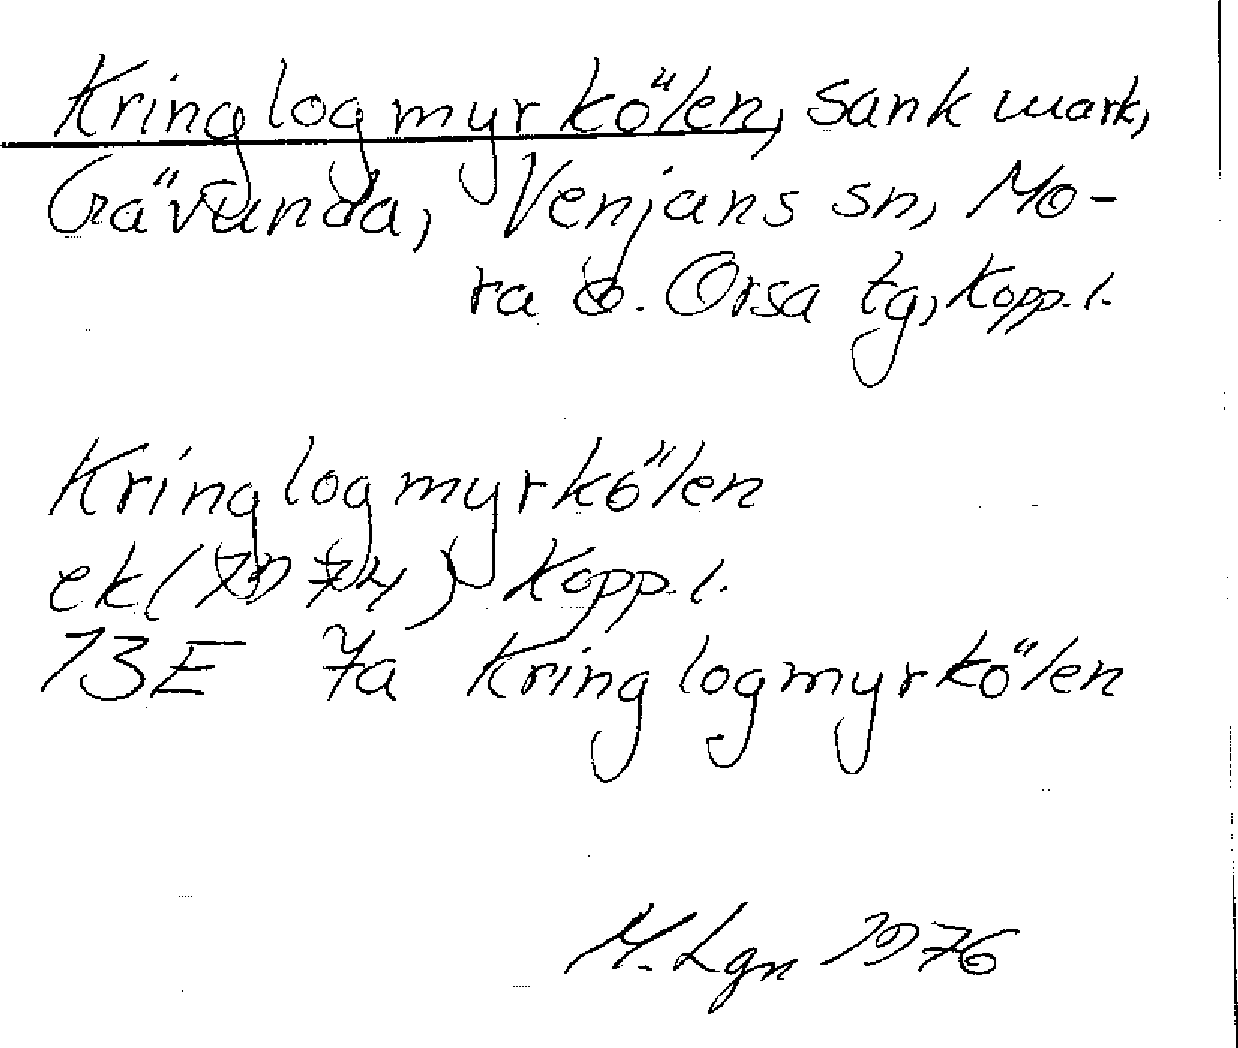 Kringlogmyrkölen, sank mark,
Gävunda, Venjans sn, Mo-
ra o. Orsa tg, Kopp. l.
Kringlogmyrkölen
ek (1974) Kopp. l.
13E 7a Kringlogmyrkölen
M. Lgn 1976